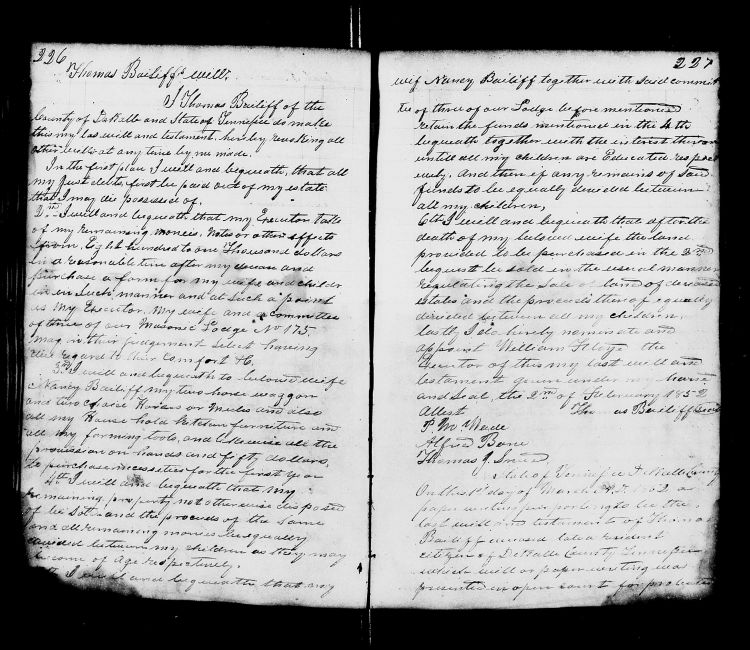 226
Thomas Bailiff's will.
I Thomas Bailiff of the
County of DeKalb and State of Tennessee do make
this my las will and testament, hereby revoking all
other wills at any time by me made.
In the first place I will and bequeath, that all
my Just debts, first be paid out of my estate
that I may die possessed of.
2nd I will and bequeath that my Executor take
of my remaining monies, Notes or other effects
from Eight hundred to one Thousand dollars
in a reasonable time after my decease and
purchase a farm for my wife and children
in such manner and at such a point
as my Executor, my wife and a committee
of three of our Masonic Lodge No 175
may in their judgement select having
due regard to their comfort &c,
3rd I will and bequeath to beloved wife
Nancy Bailiff my two horse waggon
and two choice Horses or Mules and also
all my House hold kitchen furniture and
all my farming tools, and likewise all the
provission on hands and fifty dollars,
to purchase necessities for the first year
4th I will and bequeath that my
remaining property not otherwise disposed
of be sold and the proceeds of the same
and all remaining monies be equally
divided between my children as they may
become of Age respectively.
I will and bequeath that my
227
wife Nancy Bailiff together with said commit
tee of three of our Lodge before mentioned
retain the funds mentioned in the 4th
bequeath together with the interest thereon
untill all my children are Educated respec
tively. And then if any remains of said
funds to be equally devided between
all my children,
6th I will and bequeath that after the
death of my beloved wife the land
provided to be purchased in the 2nd
bequest be sold in the usual manner
regulating the sale of land of deceased
estates and the proceeds thereof equally
devided between all my children.
lastly I do hereby nominate and
appoint William Floyd the
Executor of this my last will and
testament given under my hand
and seal, the 2nd of February 1852
Attest Thomas Bailiff Seal
P. M. Wade
Alfred Bone
Thomas J. Sneed
State of Tennessee DeKalb County
On the 1st day of March A.D. 1852 a
paper writing purporting to be the
last will and testament of Thomas
Bailiff deceased late a resident
citizen of DeKalb County Tennessee
which will or paper writing was
presented in open court for probate